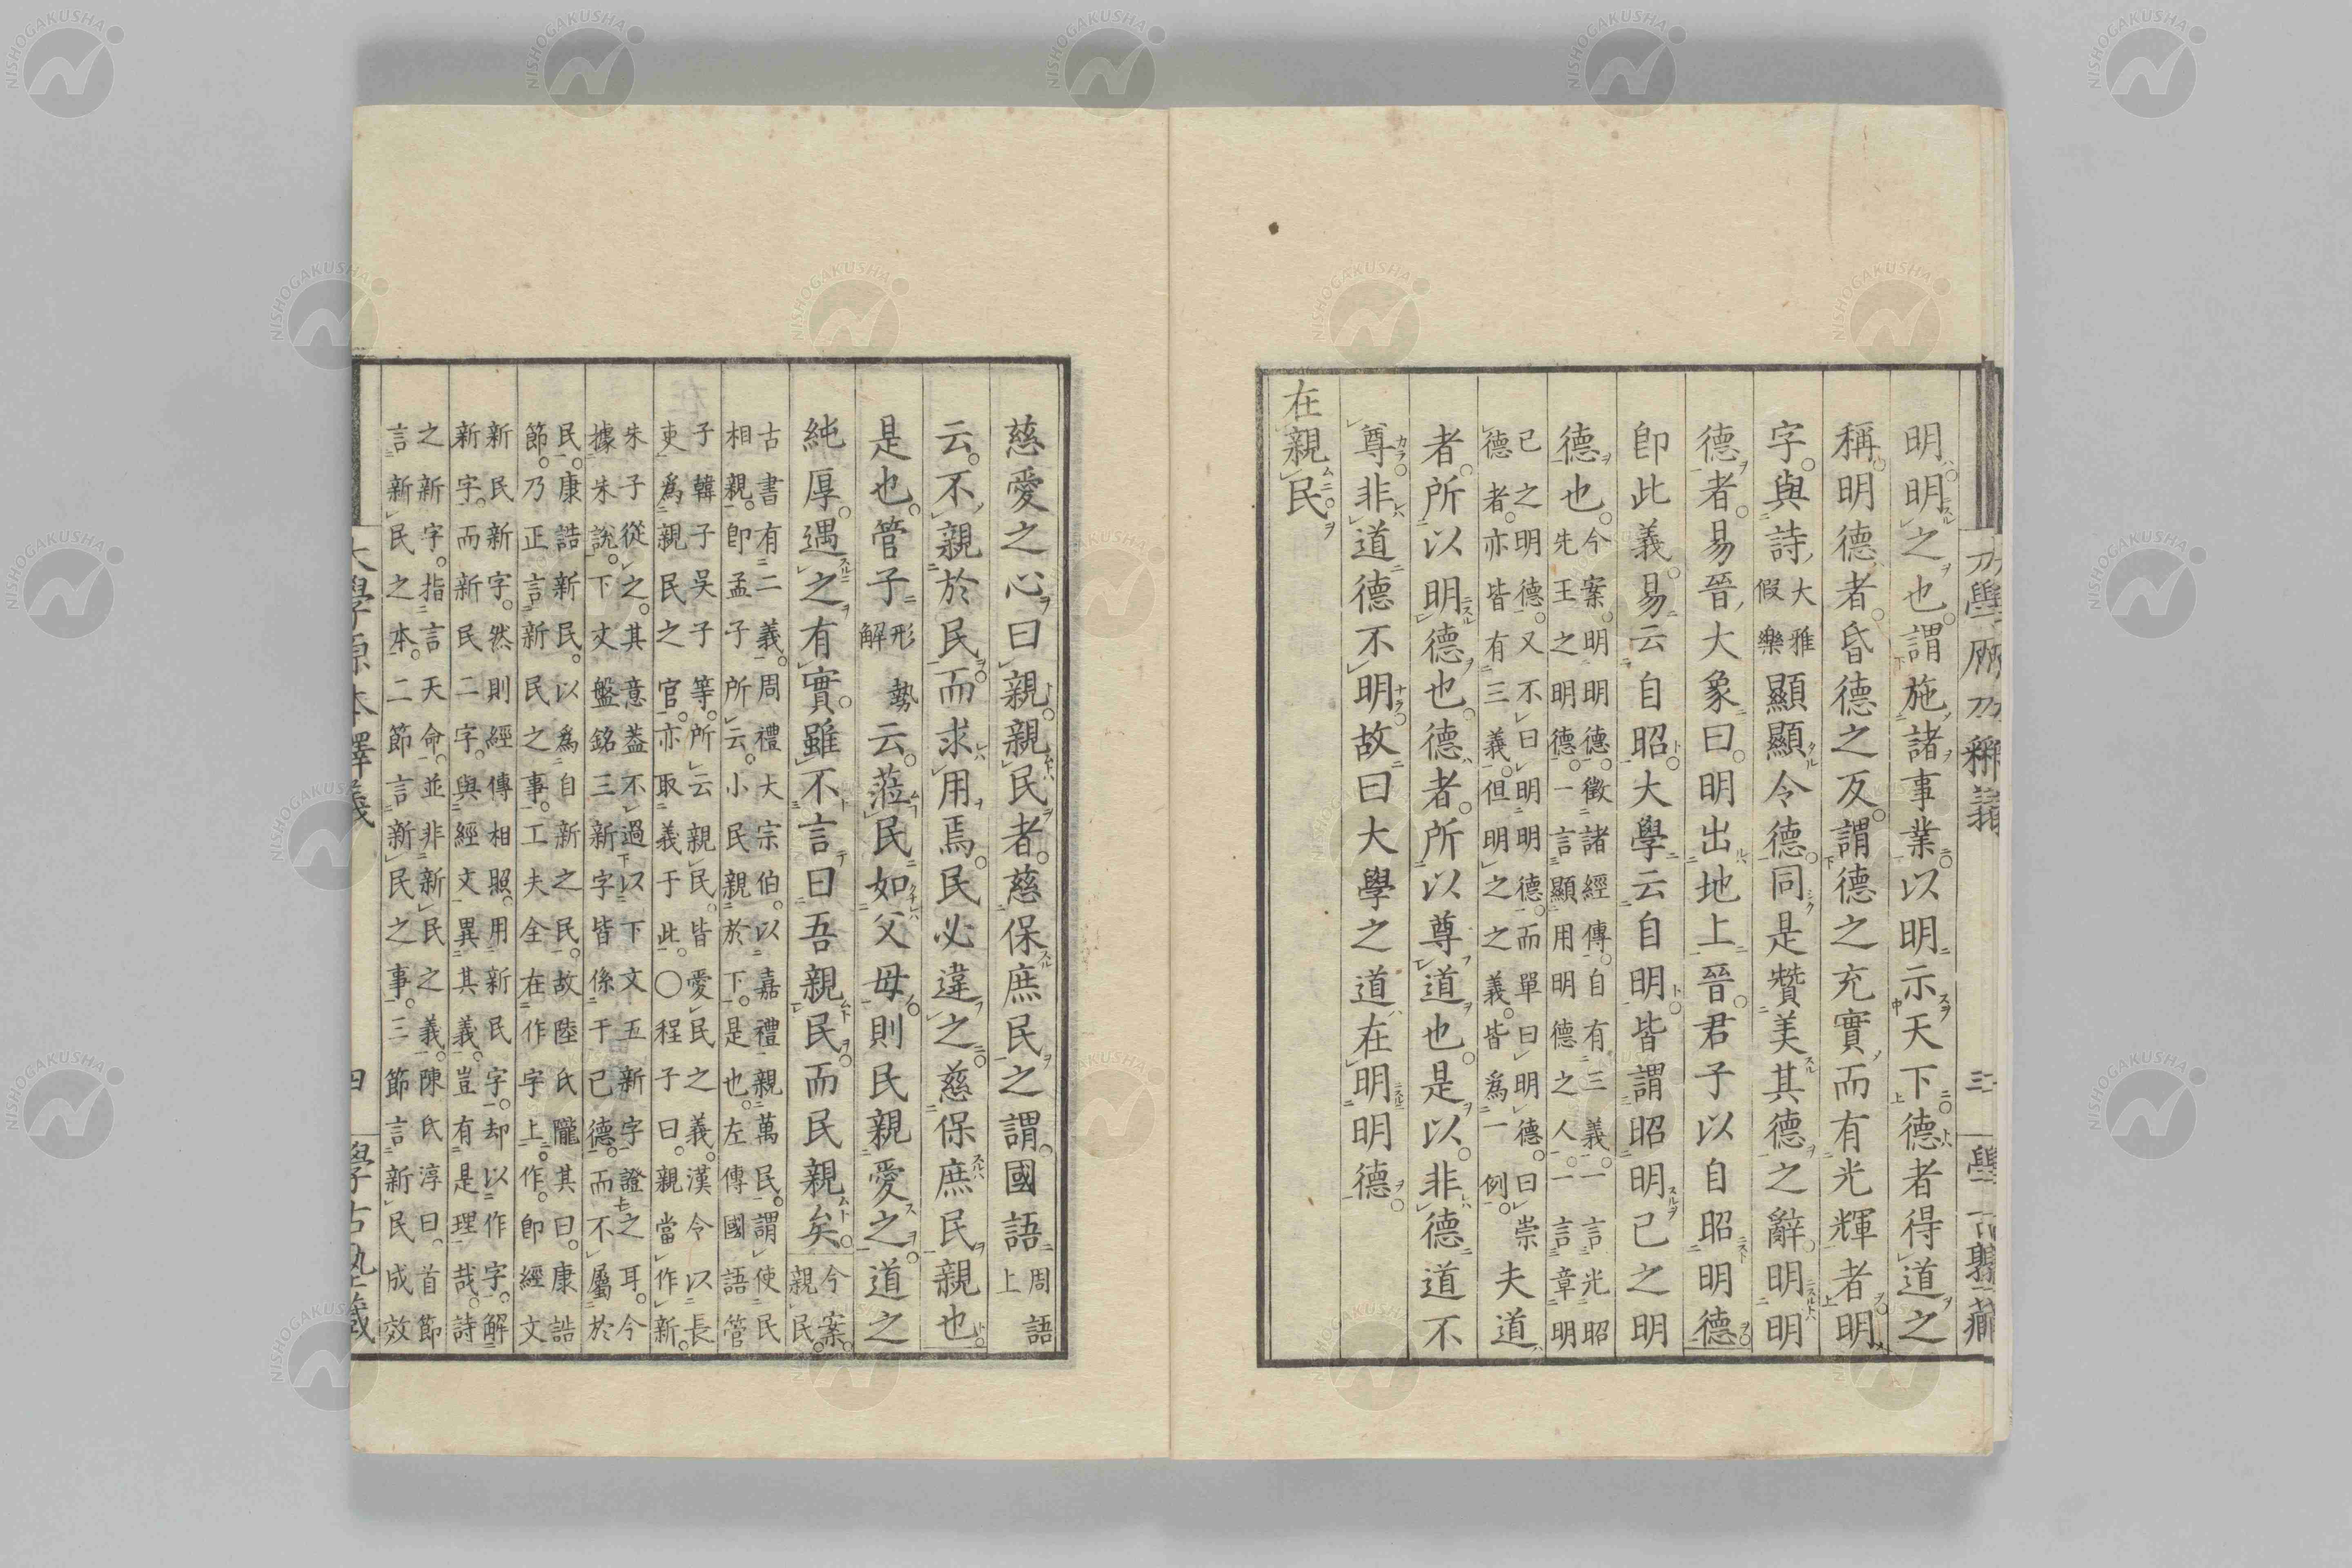 明明之也謂施諸事業以明示天下德者得道之
稱明德者昏德之反謂德之充實而有光輝者明
字與詩大雅假樂顯顯令德同是贊美其德之辭明明
德者易晉大象曰明出地上晉君子以自昭明德
卽此義易云自昭大學云自明皆謂昭明己之明
德也今案明明德徵諸經傳自有三義一言光昭
先王之明德一言顯用明德之人一言章明
已之明德又不曰明明德而單曰明德曰崇
德者亦皆有三義但明之之義皆爲一例夫道
者所以明德也德者所以尊道也是以非德道不
尊非道德不明故曰大學之道在明明德
在親民
慈愛之心曰親親民者慈保庶民之謂國語周語上
云不親於民而求用焉民必違之慈保庶民親也
是也管子形勢解云莅民如父母則民親愛之道之
純厚遇之有實雖不言曰吾親民而民親矣今案親民
古書有二義周禮大宗伯以嘉禮親萬民謂使民
相親卽孟子所云小民親於下是也左傳國語管
子韓子吳子等所云親民皆愛民之義漢令以長
吏爲親民之官亦取義于此○程子曰親當作新
朱子從之其意蓋不過以下文五新字證之耳今
據朱說下文盤銘三新字皆係于己德而不屬於
民康誥新民以爲自新之民故陸氏隴其曰康誥
節乃正言新民之事工夫全在作字上作卽經文
新民新字然則經傳相照用新民字却以作字解
新字而新民二字與經文異其義豈有是理哉詩
之新字指言天命並非新民之義陳氏淳曰首節
言新民之本二節言新民之事三節言新民成效
大學原本釋義
四
學古塾藏